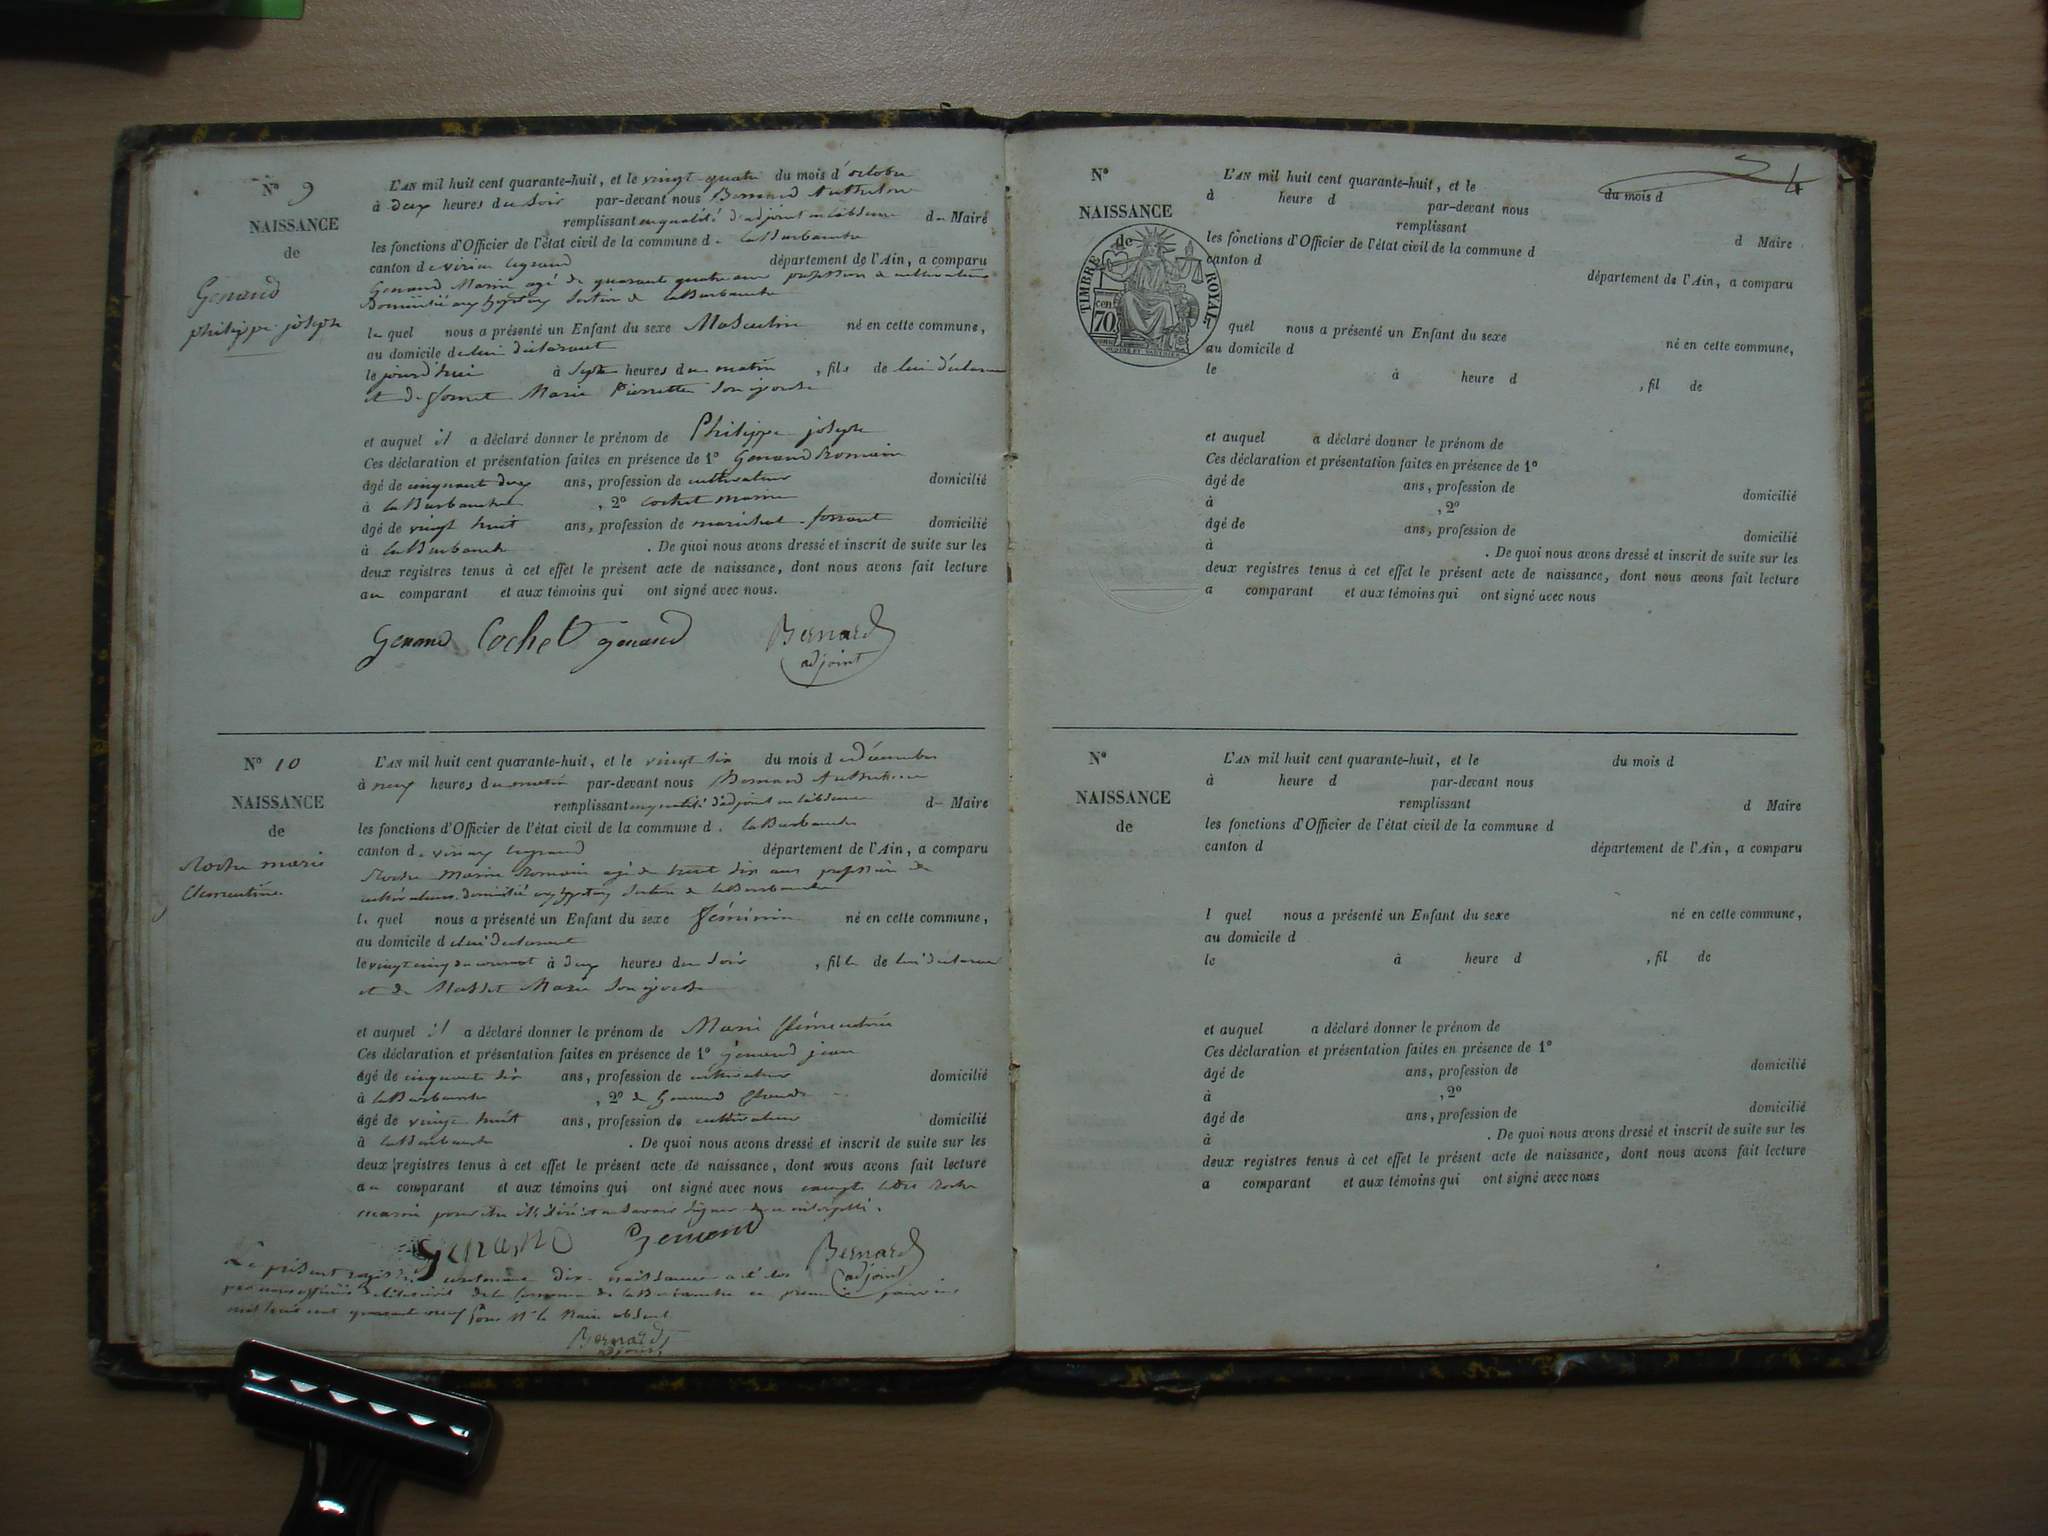 N° 9
NAISSANCE
de
Genand
philippe joseph
L'AN mil huit cent quarante-huit, et le vingt quatre du mois d'octobre
à deux heures du soir par-devant nous Bernard Anthelme
remplissant en qualité d'adjoint en l'absence du Maire
les fonctions d'Officier de l'état civil de la commune d. la Burbanche
canton de virieu legrand département de l'Ain, a comparu
Genand Marin agé de quarante quatre ans profession de cultivateur
Domicilié section de la Burbanche
le quel nous a présenté un Enfant du sexe Masculin né en cette commune,
au domicile de lui déclarant
le jourd'hui à Sept heures du matin , fils de lui déclarant
et de Marie Pierrette son épouse
et auquel il a déclaré donner le prénom de Philippe joseph
Ces déclaration et présentation faites en présence de 1° Genand Romain
âgé de cinquant deux ans, profession de cultivateur domicilié
à la Burbanche , 2° Cochet marin
âgé de vingt huit ans, profession de maréchal ferrant domicilié
à la Burbanche . De quoi nous avons dressé et inscrit de suite sur les
deux registres tenus à cet effet le présent acte de naissance, dont nous avons fait lecture
au comparant et aux témoins qui ont signé avec nous.
Genand Cochet genand Bernard
adjoint
N° 10
NAISSANCE
de
Roche marie
Clementine
L'AN mil huit cent quarante-huit, et le vingt six du mois de Décembre
à neuf heures du matin par-devant nous Bernard Anthelme
remplissant en qualité d'adjoint en l'absence du Maire
les fonctions d'Officier de l'état civil de la commune d. la Burbanche
canton d. virieux legrand département de l'Ain, a comparu
Roche Marin Romain agé de trent six ans profession de
cultivateur domicilié section de la Burbanche
l. quel nous a présenté un Enfant du sexe féminin né en cette commune,
au domicile de lui declarant
le vingt cinq du courant à deux heures du soir , fille de lui declarant
et de Marie son épouse
et auquel il a déclaré donner le prénom de Marie
Ces déclaration et présentation faites en présence de 1° genand jean
âgé de cinquante six ans, profession de cultivateur domicilié
à la Burbanche , 2° de Genand
âgé de vingt huit ans, profession de cultivateur domicilié
à la Burbanche . De quoi nous avons dressé et inscrit de suite sur les
deux registres tenus à cet effet le présent acte de naissance, dont nous avons fait lecture
au comparant et aux témoins qui ont signé avec nous excepté Roche
marin pour savoir signer de ce
Genand Genand Bernard
adjoint
Le présent registre contenant dix naissances a été clos
par nous officier de l'état civil de la commune de la Burbanche ce premier janvier
mil huit cent quarante neuf pour Mr le Maire absent
Bernard
adjoint
4
N°
NAISSANCE
de
TIMBRE ROYAL
70 cen
L'AN mil huit cent quarante-huit, et le du mois d
à heure d par-devant nous
remplissant d Maire
les fonctions d'Officier de l'état civil de la commune d
canton d département de l'Ain, a comparu
quel nous a présenté un Enfant du sexe né en cette commune,
au domicile d
le à heure d , fil de
et auquel a déclaré donner le prénom de
Ces déclaration et présentation faites en présence de 1°
âgé de ans, profession de domicilié
à , 2°
âgé de ans, profession de domicilié
à . De quoi nous avons dressé et inscrit de suite sur les
deux registres tenus à cet effet le présent acte de naissance, dont nous avons fait lecture
a comparant et aux témoins qui ont signé avec nous
N°
NAISSANCE
de
L'AN mil huit cent quarante-huit, et le du mois d
à heure d par-devant nous
remplissant d Maire
les fonctions d'Officier de l'état civil de la commune d
canton d département de l'Ain, a comparu
l quel nous a présenté un Enfant du sexe né en cette commune,
au domicile d
le à heure d , fil de
et auquel a déclaré donner le prénom de
Ces déclaration et présentation faites en présence de 1°
âgé de ans, profession de domicilié
à , 2°
âgé de ans, profession de domicilié
à . De quoi nous avons dressé et inscrit de suite sur les
deux registres tenus à cet effet le présent acte de naissance, dont nous avons fait lecture
a comparant et aux témoins qui ont signé avec nous